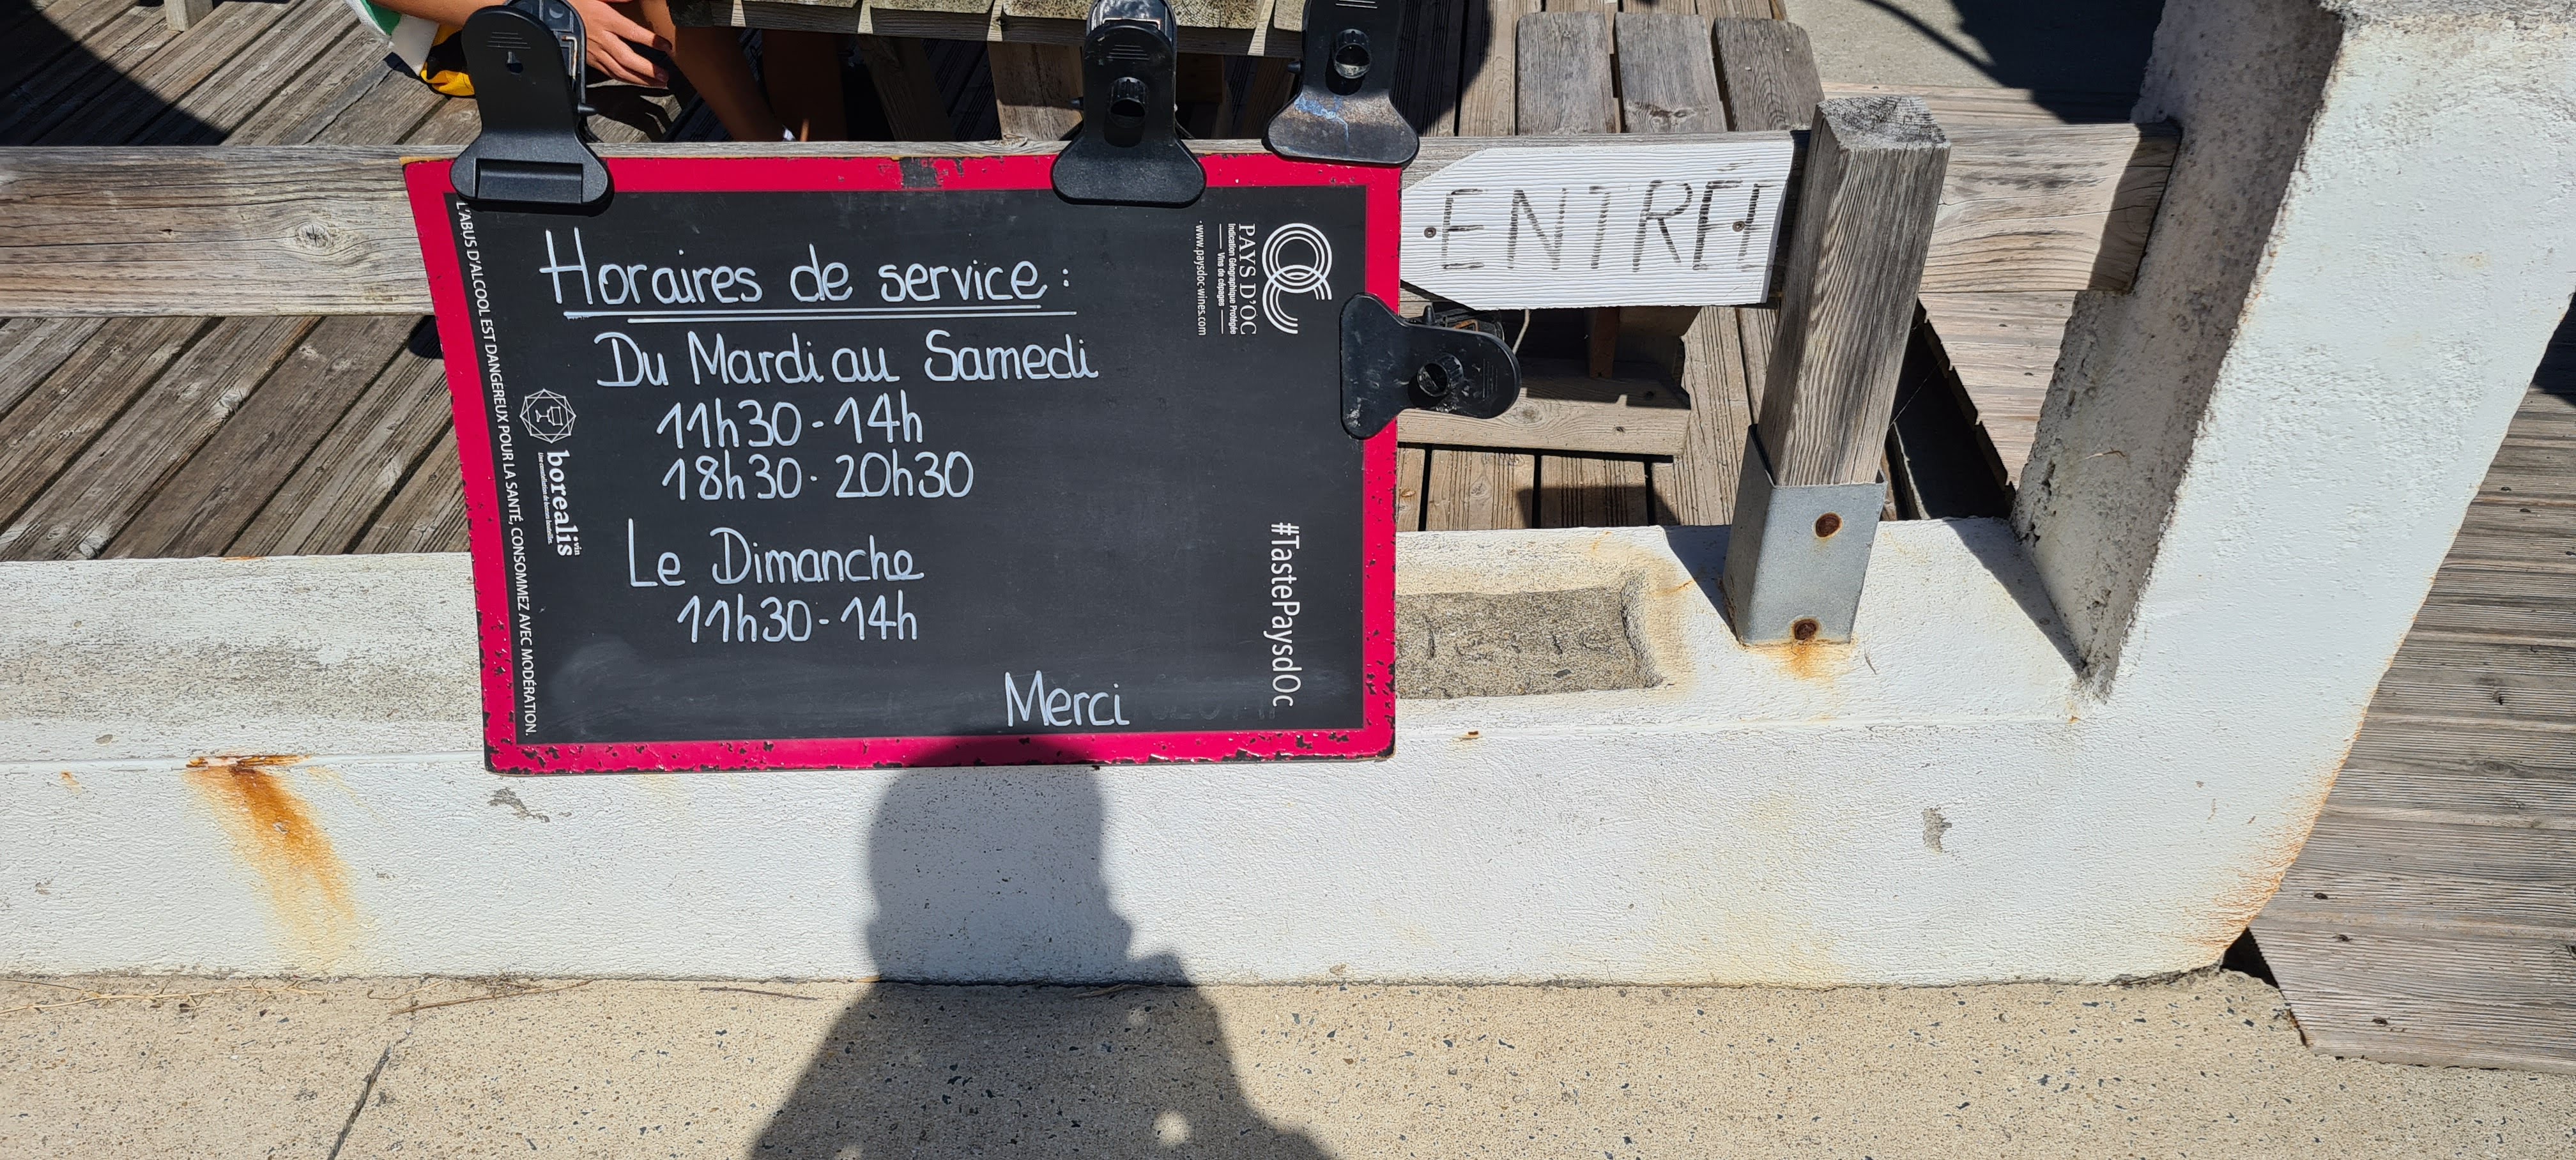 Horaires de service :
Du Mardi au Samedi
11h30 - 14h
18h30 - 20h30
Le Dimanche
11h30 - 14h
Merci
L'ABUS D'ALCOOL EST DANGEREUX POUR LA SANTÉ, CONSOMMEZ AVEC MODÉRATION.
borealis
vin
PAYS D'OC
Indication Géographique Protégée
Vins de cépages
www.paysdoc-wines.com
#TastePaysdOc
ENTRÉE